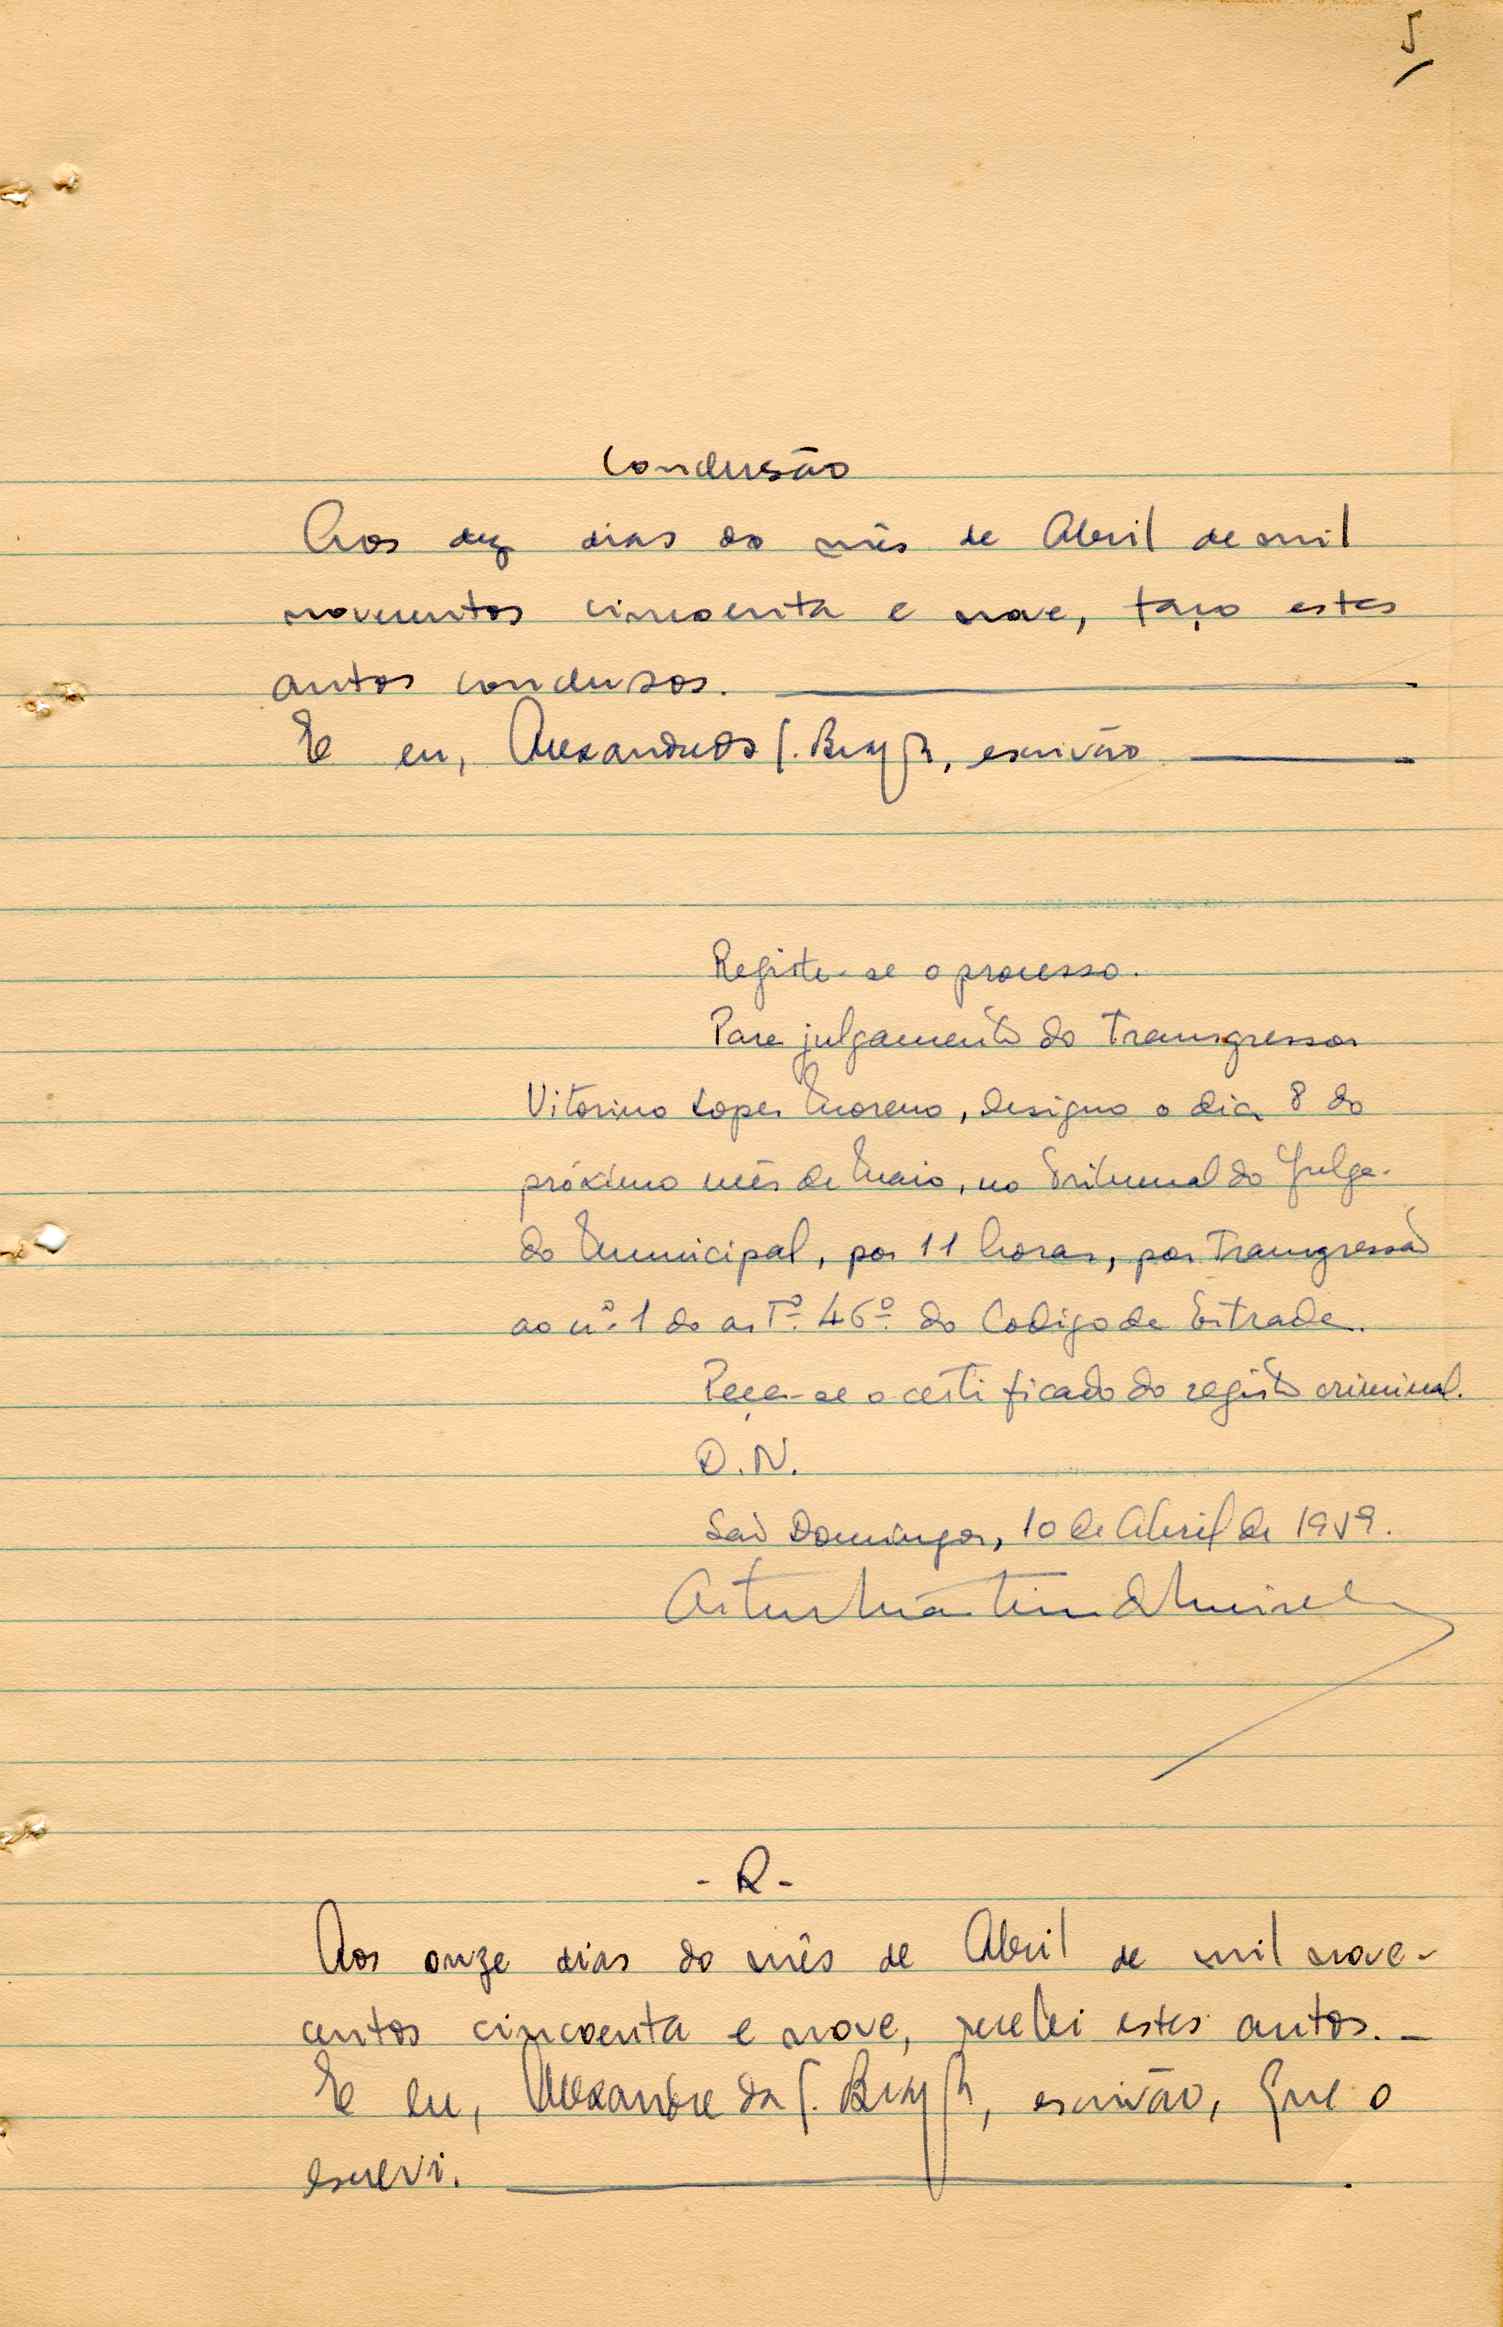 5
Conclusão
Aos dez dias do mês de Abril de mil
novecentos cincoenta e nove, faço estes
autos conclusos.
E eu, Alexandre da S., escrivão
Registe-se o processo.
Para julgamento do transgressor
Vitorino Lopes Moreno, designo o dia 8 do
próximo mês de Maio, no Tribunal do Julga-
do Municipal, por 11 horas, por transgressão
ao nº. 1 do artº. 46º. do Codigo de Estrada.
Peça-se o certificado do registo criminal.
D. N.
São Domingos, 10 de Abril de 1959.
Artur Martins
- R -
Aos onze dias do mês de Abril de mil nove-
centos cincoenta e nove, recebi estes autos.-
E eu, Alexandre da S., escrivão, que o
escrevi.